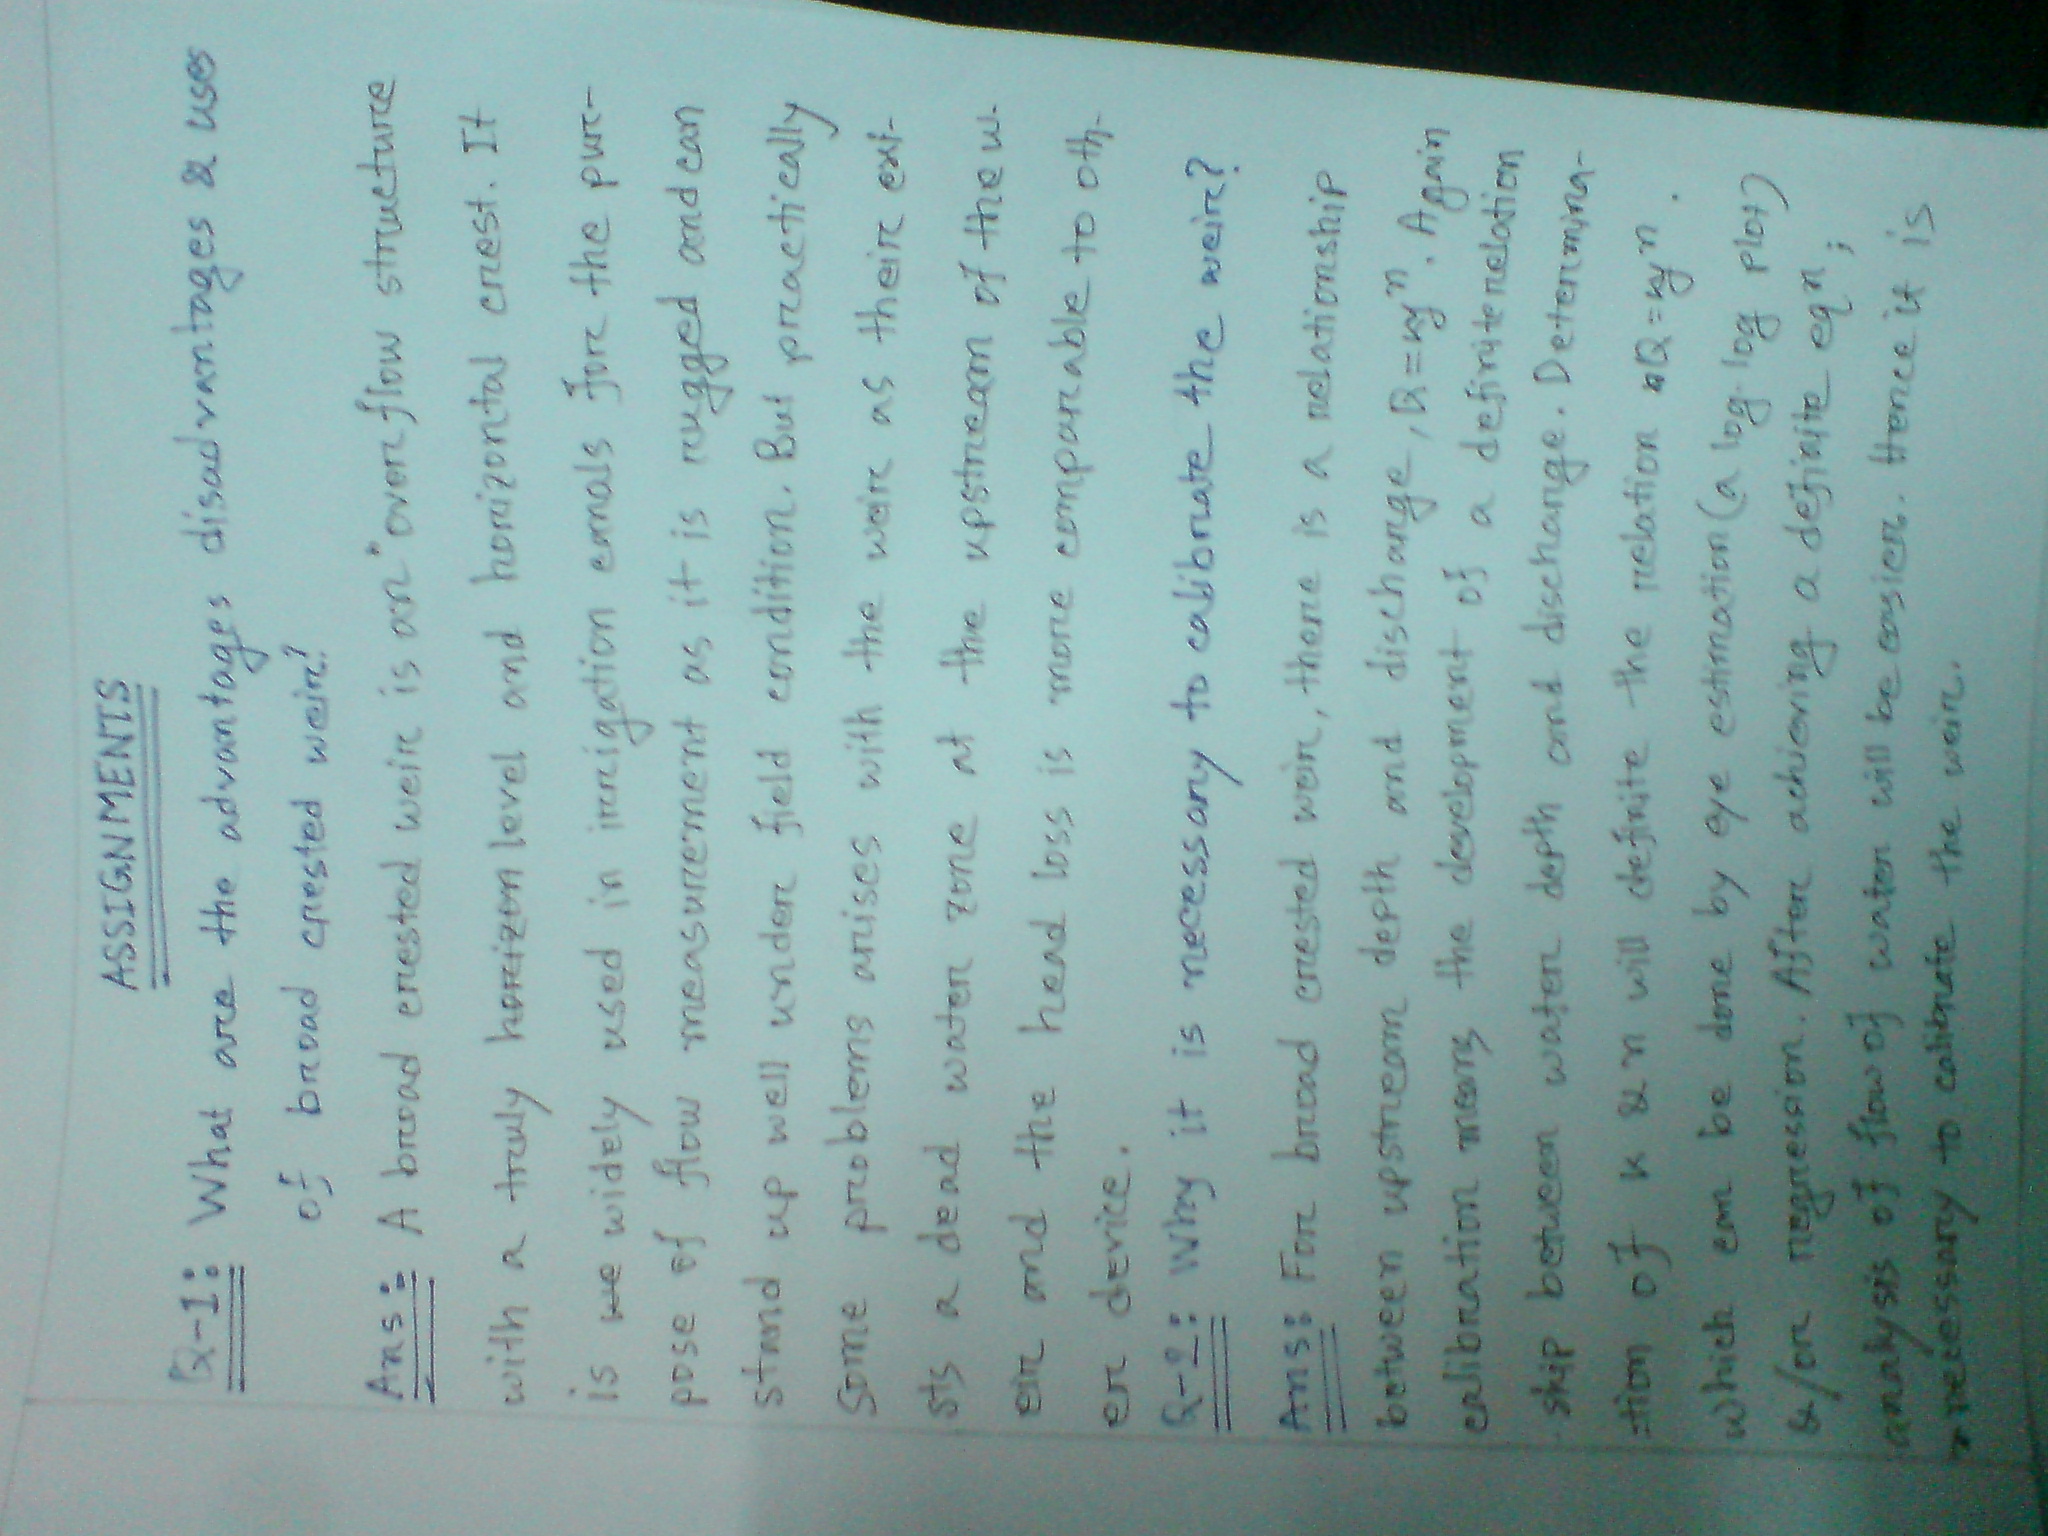 ASSIGNMENTS
Q-1: What are the advantages disadvantages & uses
of broad crested weir?
Ans: A broad crested weir is an "overflow structure
with a truly horizon level and horizontal crest. It
is we widely used in irrigation canals for the pur-
pose of flow measurement as it is rugged and can
stand up well under field condition. But practically
Some problems arises with the weir as their exi-
sts a dead water zone at the upstream of the w-
eir and the head loss is more comparable to oth-
er device.
Q-2: Why it is necessary to calibrate the weir?
Ans: For broad crested weir, there is a relationship
between upstream depth and discharge, Q=ky^n. Again
calibration means the development of a definite relation
-ship between water depth and discharge. Determina-
-tion of k & n will definite the relation Q=ky^n.
which can be done by eye estimation (a log-log plot)
&/or regression. After achieving a definite eq^n;
analysis of flow of water will be easier. Hence it is
necessary to calibrate the weir.